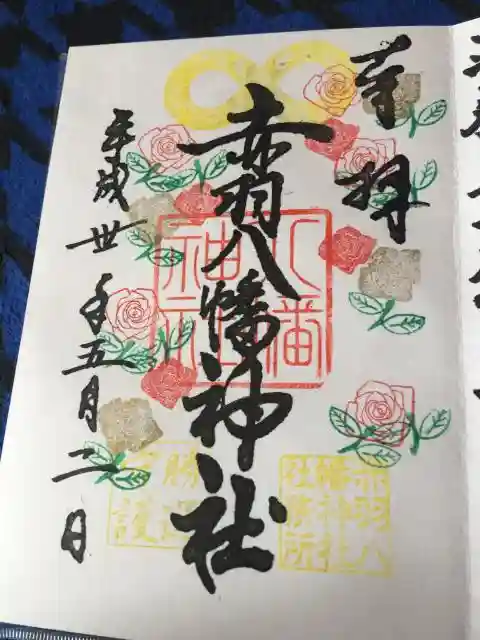 奉拝
赤羽八幡神社
八幡
神社
平成卅年五月二日
勝運
守護
赤羽八
幡神社
社務所